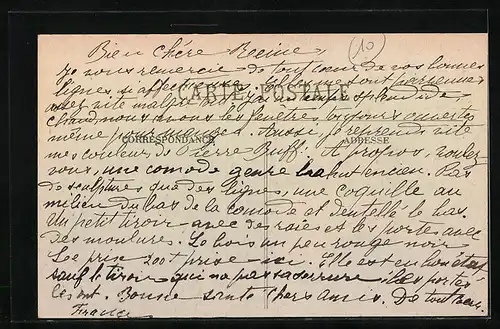 Bien chère Reine, (10)
Je vous remercie de tout coeur de vos bonnes
lignes si affectueuses. Elles me sont parvenues
assez vite malgré
CARTE POSTALE
chaud, nous avons les fenêtres toujours ouvertes
même pour manger. Aussi je reprends vite
CORRESPONDANCE
ADRESSE
mes couleurs de Pierre Buff. A propos, voulez
vous, une comode genre ancien. Pas
de sculptures que des lignes, une coquille au
milieu du bas de la comode et dentellé le bas.
Un petit tiroir avec des raies et les portes avec
des moulures. Le bois un peu rouge noir
Le prix 200f prise ici. Elle est en bon état
sauf le tiroir qui n'a pas sa serrure les portes
l'ont. Bonne santé chers amis. De tout coeur.
France